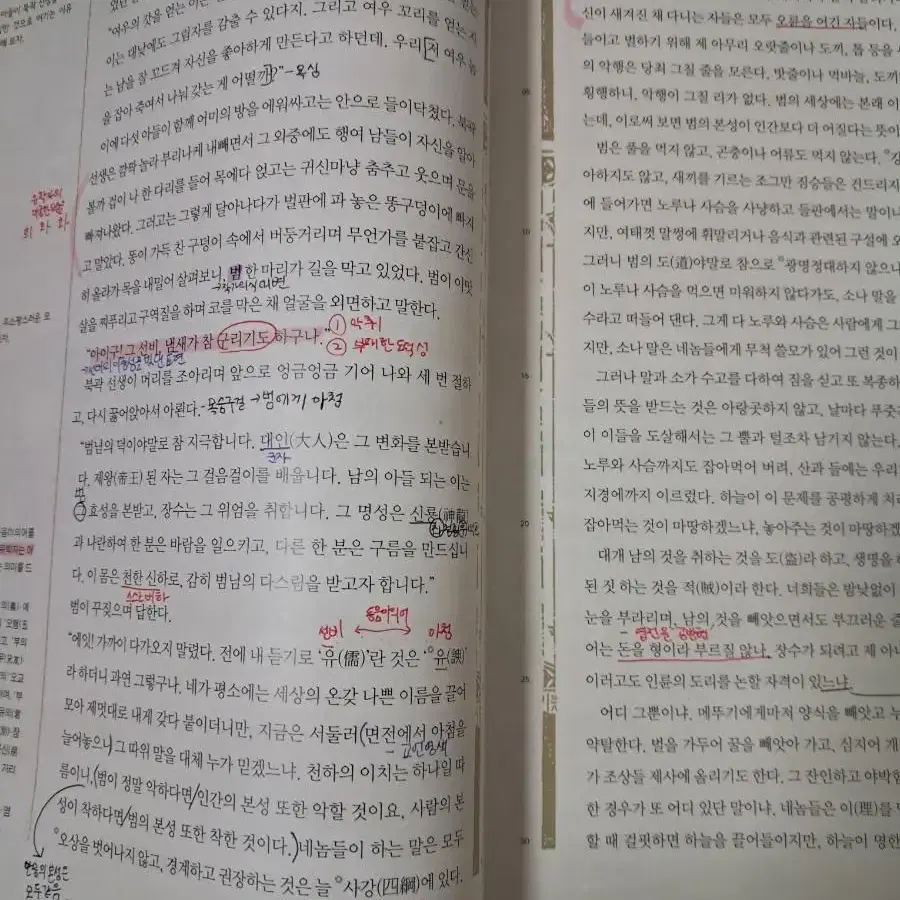 "여우의 갓을 얻는
이는 대낮에도 그림자를 감출 수 있다지. 그리고 여우 꼬리를 얻는 자
는 남을 잘 꼬드겨 자신을 좋아하게 만든다고 하던데. 우리 저 여우 놈
을 잡아 죽여서 나눠 갖는 게 어떨까?" - 욕심
이에 다섯 아들이 함께 어미의 방을 에워싸고는 안으로 들이닥쳤다. 북곽
선생은 깜짝 놀라 부리나케 내빼면서 그 와중에도 행여 남들이 자신을 알아
볼까 겁이 나 한 다리를 들어 목에다 얹고는 귀신마냥 춤추고 웃으며 문을
빠져나왔다. 그러고는 그렇게 달아나다가 벌판에 파 놓은 똥구덩이에 빠지
희화화
고 말았다. 똥이 가득 찬 구덩이 속에서 버둥거리며 무언가를 붙잡고 간신
히 올라가 목을 내밀어 살펴보니, 범 한 마리가 길을 막고 있었다. 범이 이맛
살을 찌푸리고 구역질을 하며 코를 막은 채 얼굴을 외면하고 말한다.
"아이구! 그 선비, 냄새가 참 구리기도 하구나." ① 악취
② 부패한 도덕성
북곽 선생이 머리를 조아리며 앞으로 엉금엉금 기어 나와 세 번 절하
고, 다시 꿇어앉아서 아뢴다. - 목숨구걸 → 범에게 아첨
"범님의 덕이야말로 참 지극합니다. 대인(大人)은 그 변화를 본받습니
군자
다. 제왕(帝王) 된 자는 그 걸음걸이를 배웁니다. 남의 아들 되는 이는
범
그 효성을 본받고, 장수는 그 위엄을 취합니다. 그 명성은 신룡(神龍)
과 나란하여 한 분은 바람을 일으키고, 다른 한 분은 구름을 만드십니
다. 이 몸은 천한 신하로, 감히 범님의 다스림을 받고자 합니다."
스스로 비하
범이 꾸짖으며 답한다.
선비 ↔ 아첨
동음이의어
"에잇! 가까이 다가오지 말렸다. 전에 내 듣기로 '유(儒)'란 것은 '유(諛)'
라 하더니 과연 그렇구나. 네가 평소에는 세상의 온갖 나쁜 이름을 끌어
모아 제멋대로 내게 갖다 붙이더니만, 지금은 서둘러 면전에서 아첨을
- 교언영색
늘어놓으니 그 따위 말을 대체 누가 믿겠느냐. 천하의 이치는 하나일 따
름이니, (범이 정말 악하다면/인간의 본성 또한 악할 것이요, 사람의 본
성이 착하다면/범의 본성 또한 착한 것이다.) 네놈들이 하는 말은 모두
오상을 벗어나지 않고, 경계하고 권장하는 것은 늘 사강(四綱)에 있다.
만물의 본성은
모두 같음
신이 새겨진 채 다니는 자들은 모두 오륜을 어긴 자들이다.
들이고 벌하기 위해 제 아무리 오랏줄이나 도끼, 톱 등을
의 악행은 당최 그칠 줄을 모른다. 밧줄이나 먹바늘, 도끼
횡행하니, 악행이 그칠 리가 없다. 범의 세상에는 본래 이
는데, 이로써 보면 범의 본성이 인간보다 더 어질다는 뜻이
범은 풀을 먹지 않고, 곤충이나 어류도 먹지 않는다.
아하지도 않고, 새끼를 기르는 조그만 짐승들은 건드리지
에 들어가면 노루나 사슴을 사냥하고 들판에서는 말이나
지만, 여태껏 말썽에 휘말리거나 음식과 관련된 구설에 오
그러니 범의 도(道)야말로 참으로 광명정대하지 않으냐
이 노루나 사슴을 먹으면 미워하지 않다가도, 소나 말을
수라고 떠들어 댄다. 그게 다 노루와 사슴은 사람에게 그
지만, 소나 말은 네놈들에게 무척 쓸모가 있어 그런 것이
그러나 말과 소가 수고를 다하여 짐을 싣고 또 복종하
들의 뜻을 받드는 것은 아랑곳하지 않고, 날마다 푸줏
이 이들을 도살해서는 그 뿔과 털조차 남기지 않는다.
노루와 사슴까지도 잡아먹어 버려, 산과 들에는 우리
지경에까지 이르렀다. 하늘이 이 문제를 공평하게 처
잡아먹는 것이 마땅하겠느냐, 놓아주는 것이 마땅하겠
대개 남의 것을 취하는 것을 도(盜)라 하고, 생명을
된 짓 하는 것을 적(賊)이라 한다. 너희들은 밤낮없이
눈을 부라리며, 남의 것을 빼앗으면서도 부끄러운 줄
어는 돈을 형이라 부르질 않나, 장수가 되려고 제 아
이러고도 인륜의 도리를 논할 자격이 있느냐.
어디 그뿐이냐. 메뚜기에게마저 양식을 빼앗고 누
약탈한다. 벌을 가두어 꿀을 빼앗아 가고, 심지어 개
가 조상들 제사에 올리기도 한다. 그 잔인하고 야박함
한 경우가 또 어디 있단 말이냐. 네놈들은 이(理)를
할 때 걸핏하면 하늘을 끌어들이지만, 하늘이 명한